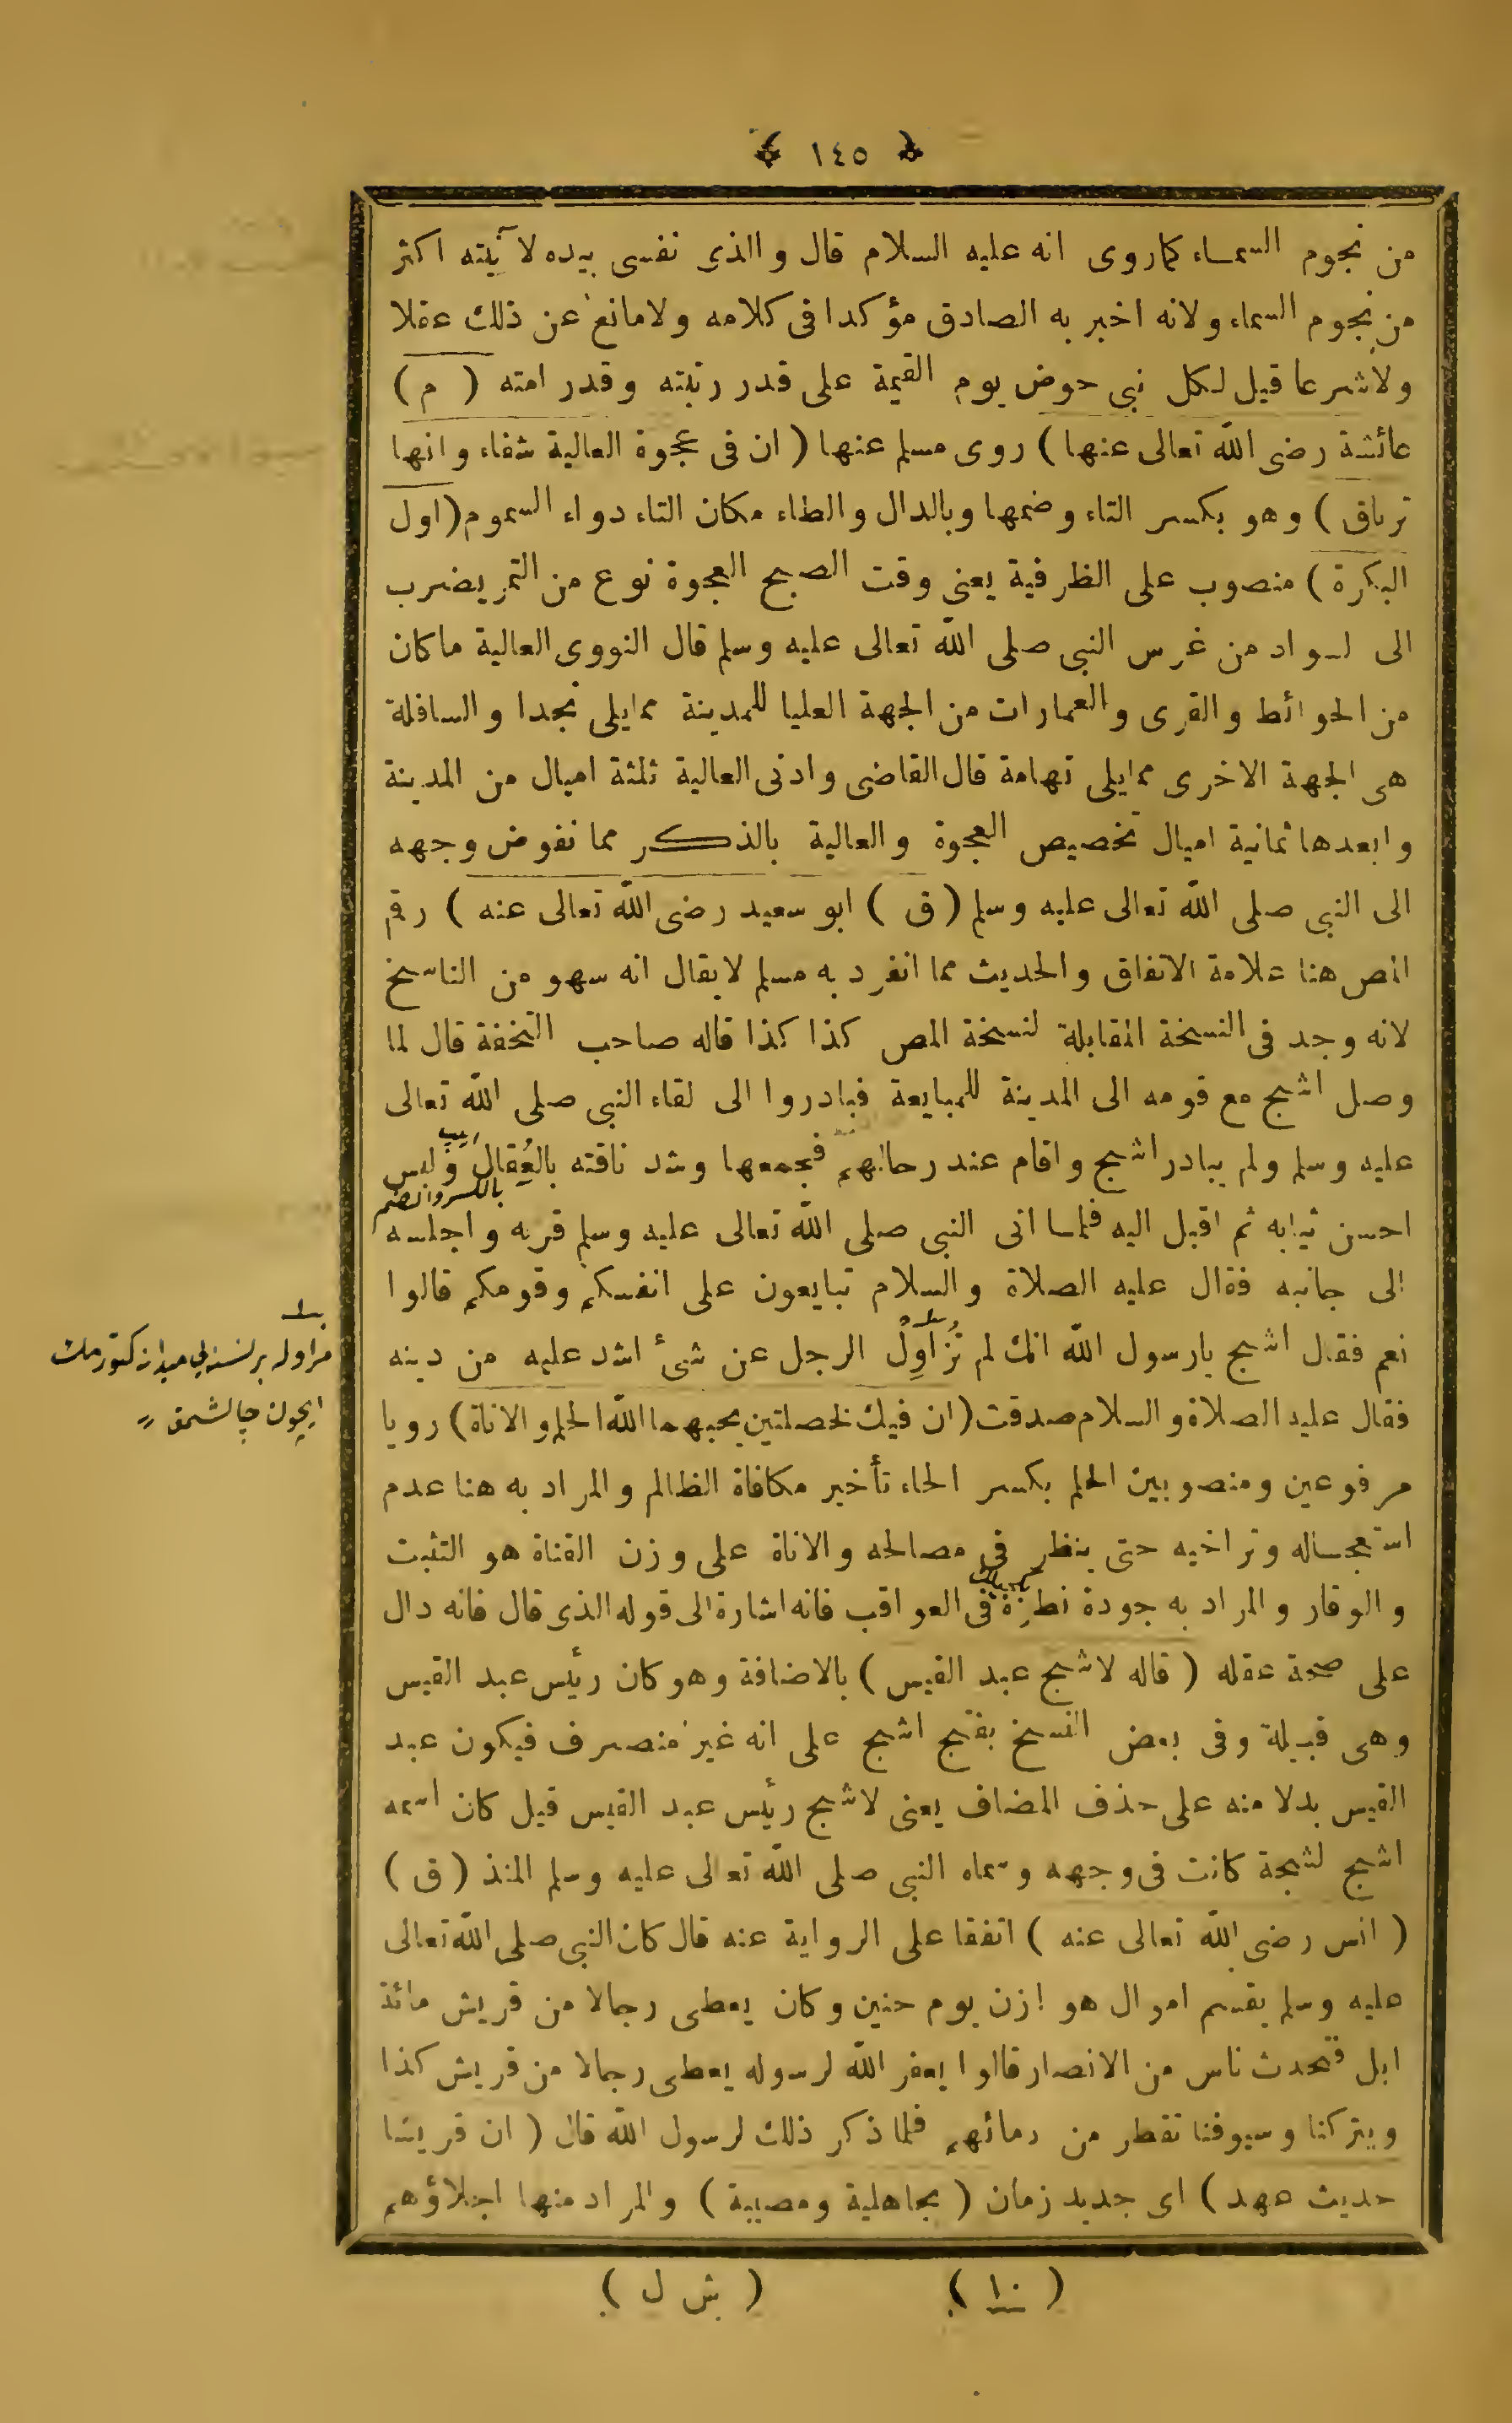 ﴿ ١٤٥ ﴾
من نجوم السماء كماروى انه عليه السلام قال والذى نفسى بيده لآنيته اكثر
من نجوم السماء ولانه اخبر به الصادق مؤكدا فى كلامه ولامانع عن ذلك عقلا
ولاشرعا قيل لكل نبى حوض يوم القيمة على قدر رتبته وقدر امته ( م )
عائشة رضى الله تعالى عنها ) روى مسلم عنها ( ان فى عجوة العالية شفاء وانها
ترياق ) وهو بكسر التاء وضمها وبالدال والطاء مكان التاء دواء السموم ( اول
البكرة ) منصوب على الظرفية يعنى وقت الصبح العجوة نوع من التمر يضرب
الى السواد من غرس النبى صلى الله تعالى عليه وسلم قال النووى العالية ماكان
من الحوائط والقرى والعمارات من الجهة العليا للمدينة ممايلى نجدا والسافلة
هى الجهة الاخرى ممايلى تهامة قال القاضى وادنى العالية ثلثة اميال من المدينة
وابعدها ثمانية اميال تخصيص العجوة والعالية بالذكر مما نفوض وجهه
الى النبى صلى الله تعالى عليه وسلم ( ق ) ابو سعيد رضى الله تعالى عنه ) رقم
المص هنا علامة الاتفاق والحديث مما انفرد به مسلم لايقال انه سهو من الناسخ
لانه وجد فى النسخة المقابلة لنسخة المص كذا كذا قاله صاحب التحفة قال لما
وصل اشج مع قومه الى المدينة للمبايعة فبادروا الى لقاء النبى صلى الله تعالى
عليه وسلم ولم يبادر اشج واقام عند رحالهم فجمعها وشد ناقته بالعُقال ولبس
ايپ
بالكسر والضم
احسن ثيابه ثم اقبل اليه فلما اتى النبى صلى الله تعالى عليه وسلم قربه واجلسه
الى جانبه فقال عليه الصلاة والسلام تبايعون على انفسكم وقومكم قالوا
نعم فقال اشج يارسول الله انك لم تُزاوِلُ الرجل عن شئ اشد عليه من دينه
فقال عليه الصلاة والسلام صدقت ( ان فيك لخصلتين يحبهما الله الحلم والاناة ) رويا
مرفوعين ومنصوبين الحلم بكسر الحاء تأخير مكافاة الظالم والمراد به هنا عدم
استعجاله وتراخيه حتى ينظر فى مصالحه والاناة على وزن القناة هو التثبت
والوقار والمراد به جودة نظره فى العواقب فانه اشارة الى قوله الذى قال فانه دال
على صحة عقله ( قاله لاشج عبد القيس ) بالاضافة وهو كان رئيس عبد القيس
وهى قبيلة وفى بعض النسخ بفتح اشج على انه غير منصرف فيكون عبد
القيس بدلا منه على حذف المضاف يعنى لاشج رئيس عبد القيس قيل كان اسمه
اشج لشجة كانت فى وجهه وسماه النبى صلى الله تعالى عليه وسلم المنذ ( ق )
( انس رضى الله تعالى عنه ) اتفقا على الرواية عنه قال كان النبى صلى الله تعالى
عليه وسلم يقسم اموال هوازن يوم حنين وكان يعطى رجالا من قريش مائة
ابل فتحدث ناس من الانصار قالوا يعفر الله لرسوله يعطى رجالا من قريش كذا
ويتركنا وسيوفنا تقطر من دمائهم فلما ذكر ذلك لرسول الله قال ( ان قريشا
حديث عهد ) اى جديد زمان ( بجاهلية ومصيبة ) والمراد منها اجلاؤهم
( ١٠ ) ( ش ل )
مزاوله برنسنه يي ميدانه كتورمك
ايچون چالشمق